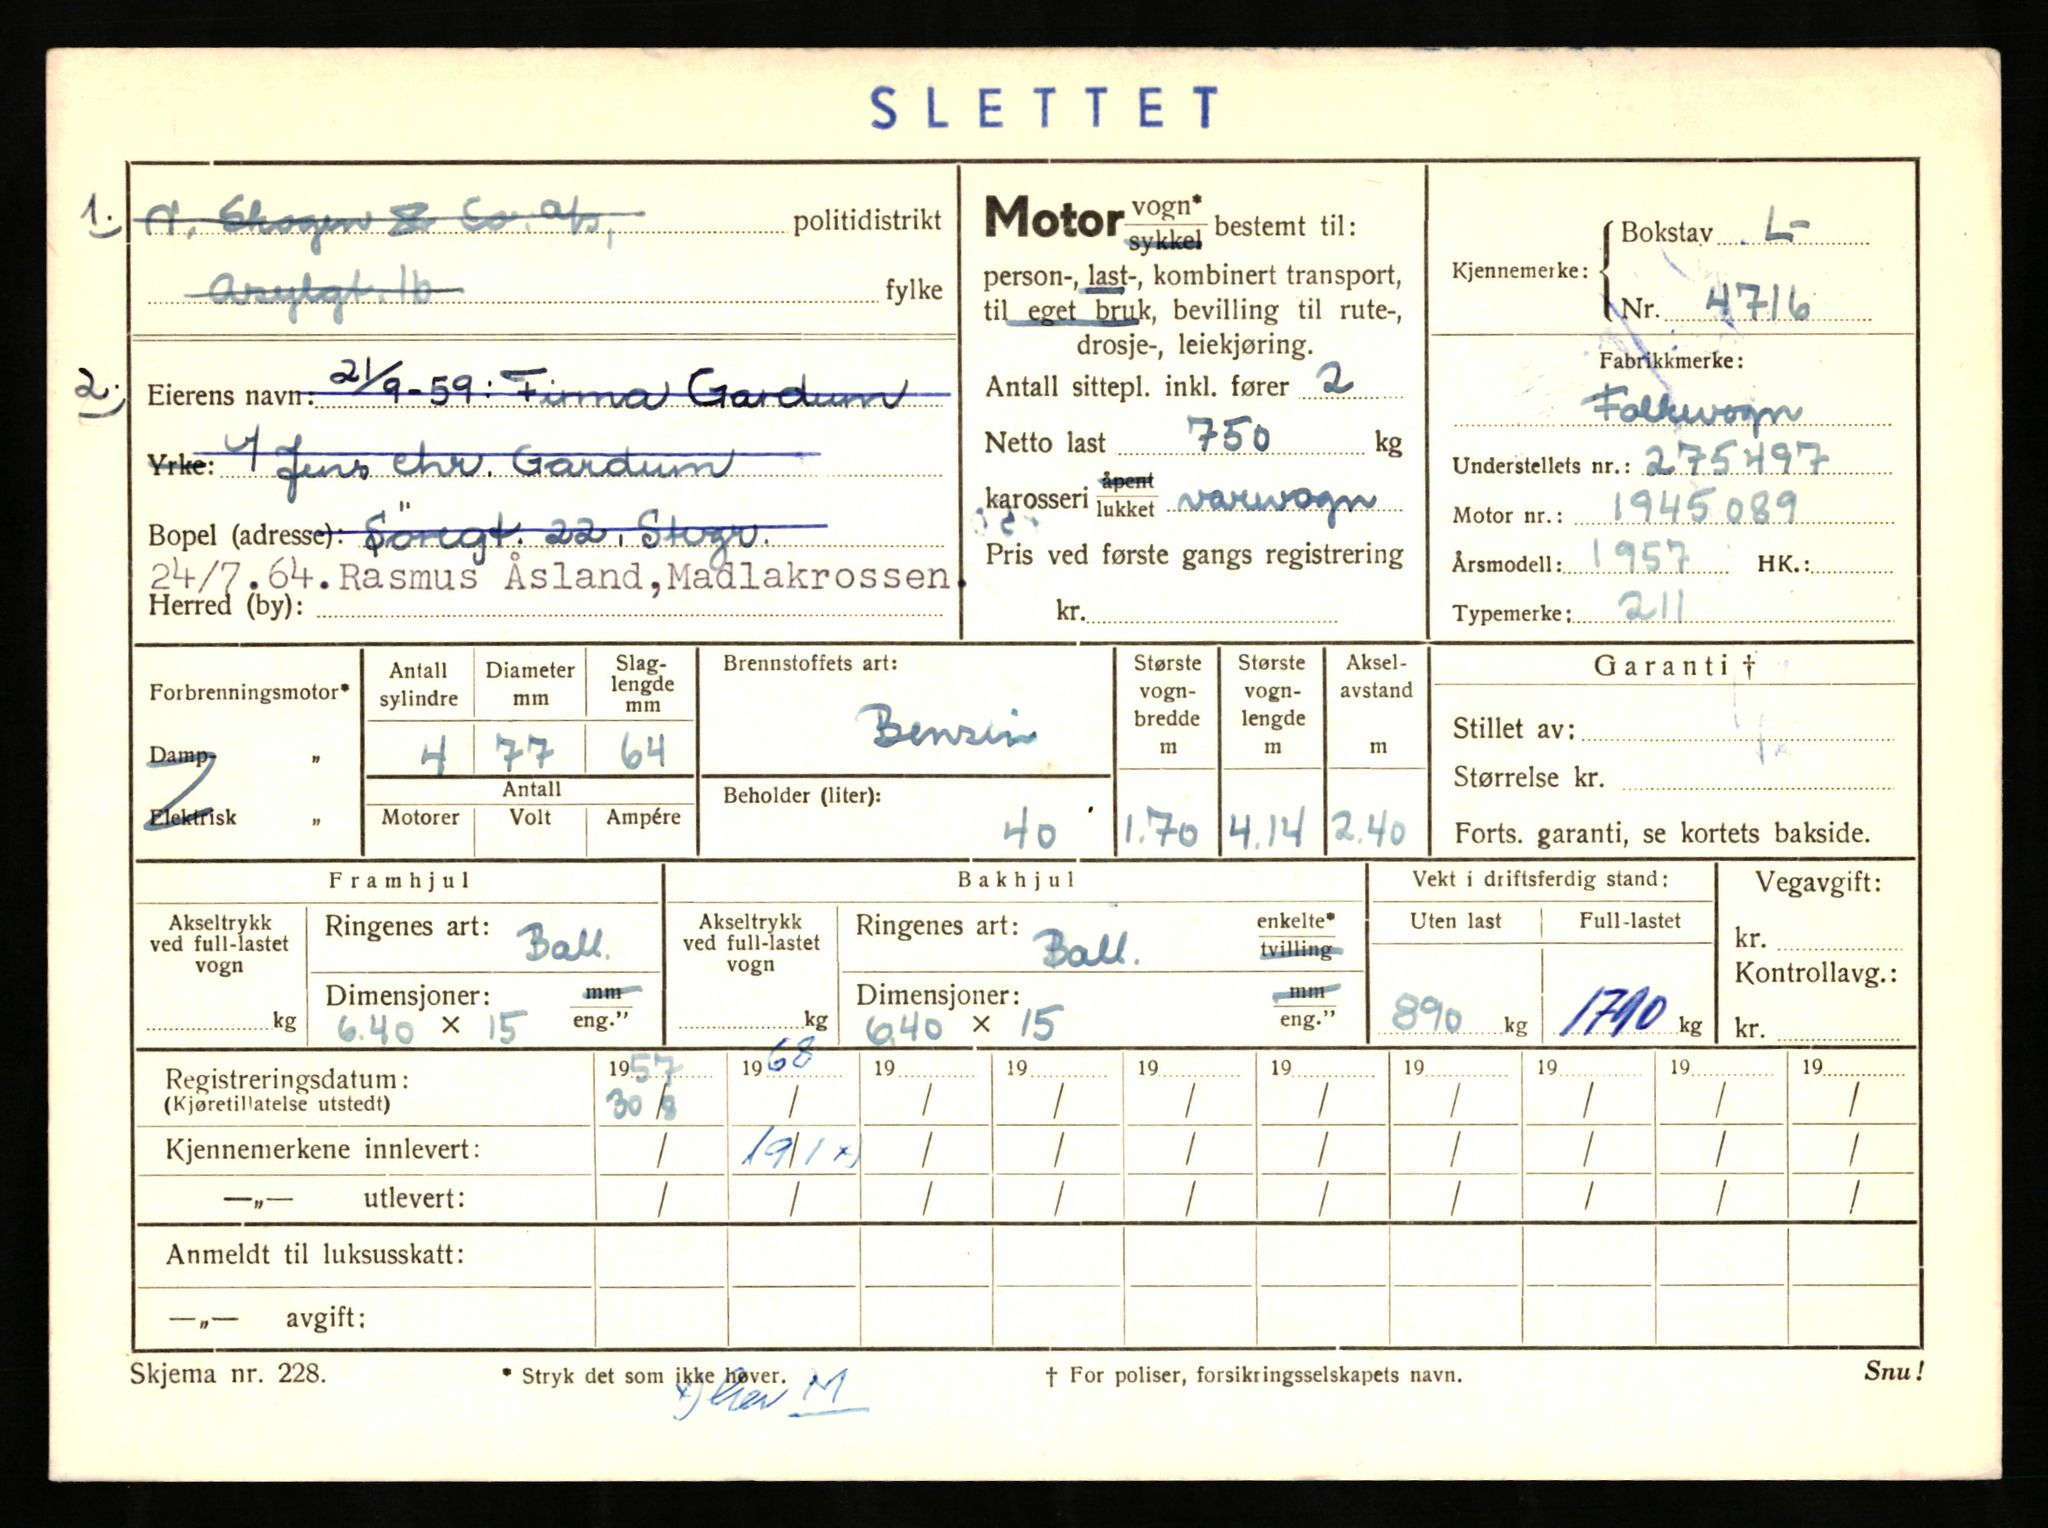 SLETTET
1. N. Skogen & Co. A/s, politidistrikt
Asylgt. 1b fylke
2. Eierens navn: 21/9-59: Firma Gardum
Yrke: Jens Chr. Gardum
Bopel (adresse): Söregt. 22, Stvgr.
24/7.64. Rasmus Åsland, Madlakrossen.
Herred (by):
Motor vogn* sykkel bestemt til:
person-, last-, kombinert transport,
til eget bruk, bevilling til rute-,
drosje-, leiekjøring.
Antall sittepl. inkl. fører 2
Netto last 750 kg
karosseri åpent lukket varevogn
Pris ved første gangs registrering
kr.
Kjennemerke: Bokstav L-
Nr. 4716
Fabrikkmerke:
Folkevogn
Understellets nr.: 275497
Motor nr.: 1945089
Årsmodell: 1957 HK.:
Typemerke: 211
Forbrenningsmotor*
Damp- "
Elektrisk "
Antall sylindre
4
Diameter mm
77
Slag-lengde mm
64
Antall
Motorer Volt Ampére
Brennstoffets art:
Bensin
Beholder (liter):
40
Største vogn-bredde m
1.70
Største vogn-lengde m
4.14
Aksel-avstand m
2.40
Garanti †
Stillet av:
Størrelse kr.
Forts. garanti, se kortets bakside.
Framhjul
Akseltrykk ved full-lastet vogn
kg
Ringenes art: Ball.
Dimensjoner: mm
6.40 × 15 eng."
Bakhjul
Akseltrykk ved full-lastet vogn
kg
Ringenes art: Ball. enkelte* tvilling
Dimensjoner: mm
6.40 × 15 eng."
Vekt i driftsferdig stand:
Uten last Full-lastet
890 kg 1790 kg
Vegavgift:
kr.
Kontrollavg.:
kr.
Registreringsdatum: 1957 1968 19 19 19 19 19 19 19 19
(Kjøretillatelse utstedt) 30/8 / / / / / / / / /
Kjennemerkene innlevert: / 19/1 x) / / / / / / / /
—„— utlevert: / / / / / / / / / /
Anmeldt til luksusskatt:
—„— avgift:
Skjema nr. 228. * Stryk det som ikke høver. † For poliser, forsikringsselskapets navn. Snu!
x) M